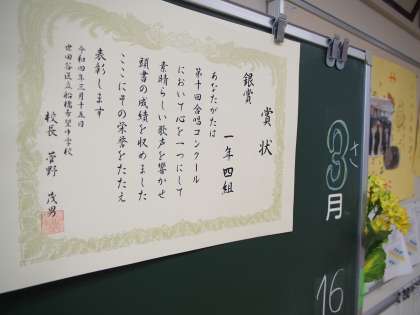 賞状
銀賞
一年四組
あなたがたは
第十回合唱コンクール
において心を一つにして
素晴らしい歌声を響かせ
頭書の成績を収めました
ここにその栄誉をたたえ
表彰します
令和四年三月十五日
世田谷区立船橋希望中学校
校長 菅野 茂男
3月
16
さ